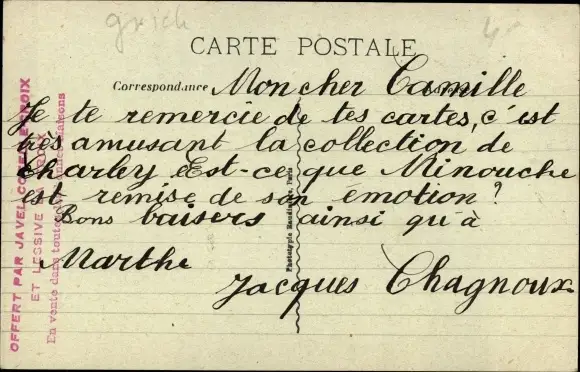 grich
CARTE POSTALE
Correspondance
Mon cher Camille
Je te remercie de tes cartes, c'est
très amusant la collection de
charley Est-ce que Minouche
est remise de son émotion?
Bons baisers ainsi qu'à
Marthe
Jacques Chagnoux
OFFERT PAR JAVEL CROIX
ET LESSIVE
En vente dans toutes
Phototypie Baudinière, Paris